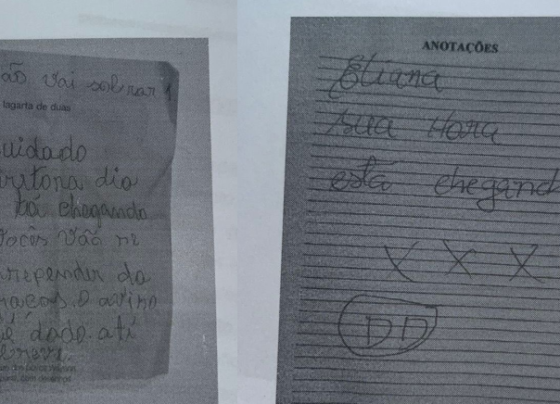 ão vai sobrar 1
lagarta de duas
uidado
iretora dia
tá chegando
Vocês vão
arrepender da
o aviso
é dado até
ANOTAÇÕES
Eliana
sua Hora
está chegand
X X X
DD